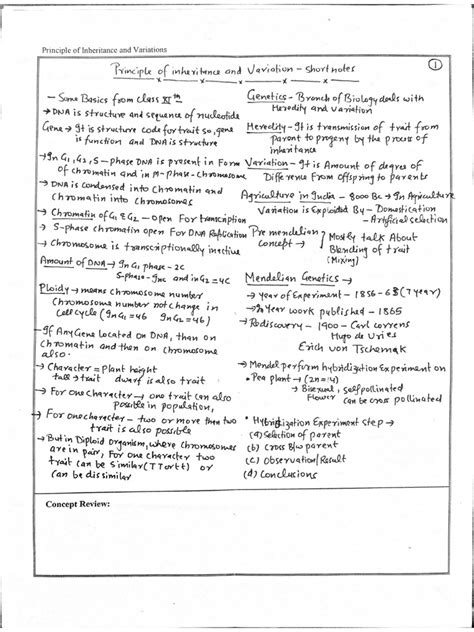 Principle of Inheritance and Variations
Principle of inheritance and Variation - Short notes
1
- Some Basics from Class XIth
→ DNA is structure and sequence of nucleotide
Gene → It is structure code for trait so, gene
is function and DNA is structure
→ In G1, G2, S - phase DNA is present in Form
of chromatin and in M-Phase - chromosome
→ DNA is condensed into Chromatin and
Chromatin into Chromosomes
→ Chromatin of G1 & G2 - open For transcription
→ S-phase chromatin open For DNA Replication
→ Chromosome is transcriptionally inactive
Amount of DNA → In G1 phase - 2C
S-phase - Inc and in G2 = 4C
Ploidy → means chromosome number
Chromosome number not change in
Cell cycle (In G1 = 46 In G2 = 46)
- If Any Gene located on DNA, than on
Chromatin and then on chromosome
also.
→ Character = Plant height
tall → trait dwarf is also trait
→ For One Character → one trait can also
Possible in population,
→ For one character - two or more then two
trait is also possible
→ But in Diploid organism, where Chromosomes
are in pair, For one Character two
trait can be Similar (TT or tt) or
Can be dissimilar
Genetics - Branch of Biology deals with
Heredity and Variation
Heredity - It is transmission of trait from
parent to progeny by the process of
inheritance
Variation - It is Amount of degree of
Difference From offspring to parents
Agriculture in India - 8000 BC → In Agriculture
Variation is Exploited By - Domestication
- Artificial selection
Pre mendelian
Concept →
Mostly talk About
Blending of trait
(Mixing)
Mendelian Genetics →
→ year of Experiment - 1856-63 (7 year)
→ year work published - 1865
→ Rediscovery - 1900 - Carl correns
Hugo de Vries
Erich von Tschemak
→ Mendel perform hybridization Experiment on
• Pea plant → (2n=14)
→ Bisexual, self pollinated
Flower can be cross pollinated
• Hybridization Experiment step →
(a) Selection of parent
(b) Cross B/w parent
(c) Observation/Result
(d) Conclusions
Concept Review: